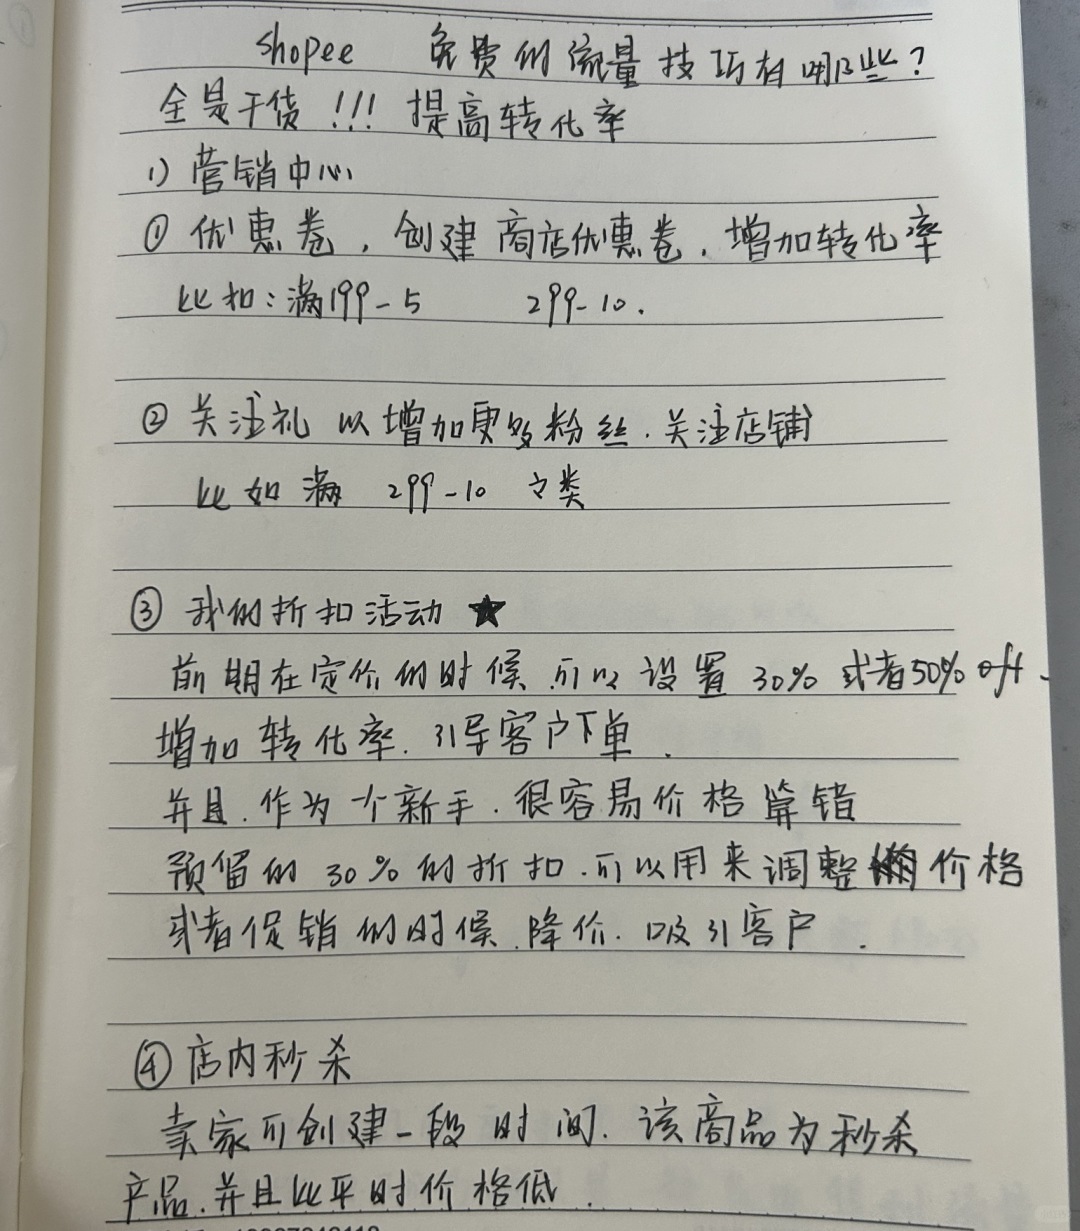 shopee 免费的流量技巧有哪些?
全是干货!!! 提高转化率
1) 营销中心
① 优惠卷,创建商店优惠卷,增加转化率
比如:满199-5 299-10.
② 关注礼 以增加更多粉丝.关注店铺
比如满 299-10 之类
③ 我的折扣活动 ★
前期在定价的时候.可以设置 30% 或者50% off.
增加转化率.引导客户下单.
并且.作为一个新手.很容易价格算错
预留的30%的折扣.可以用来调整价格
或者促销的时候.降价.吸引客户.
④ 店内秒杀
卖家可创建一段时间.该商品为秒杀
产品.并且比平时价格低.